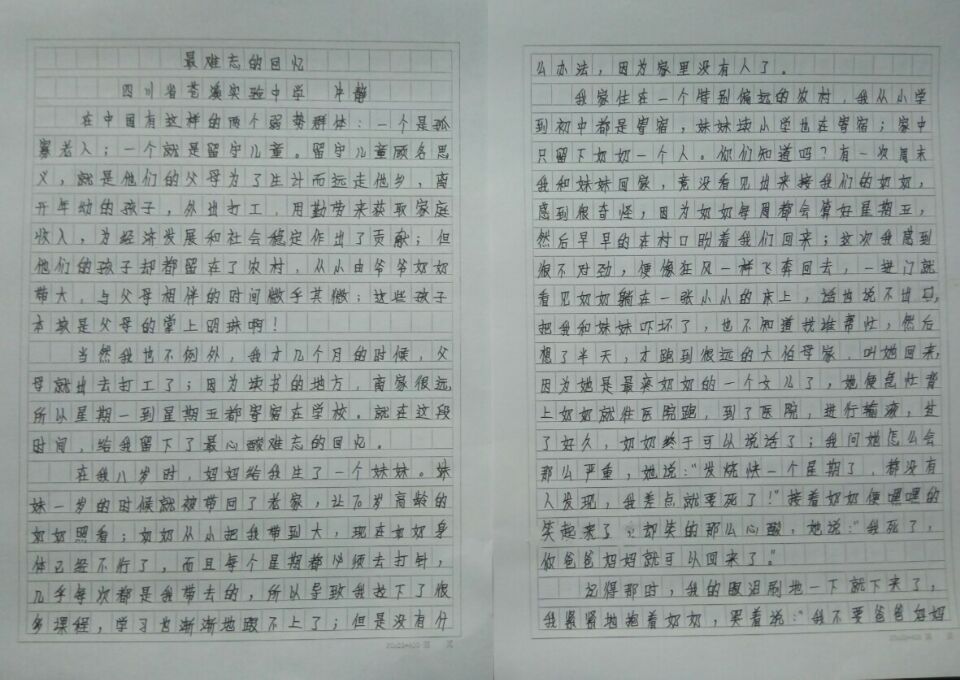 最难忘的回忆
四川省苍溪实验中学 冲静
在中国有这样的两个弱势群体：一个是孤
寡老人；一个就是留守儿童。留守儿童顾名思
义，就是他们的父母为了生计而远走他乡，离
开年幼的孩子，外出打工，用勤劳来获取家庭
收入，为经济发展和社会稳定作出了贡献；但
他们的孩子却都留在了农村，从小由爷爷奶奶
带大，与父母相伴的时间微乎其微；这些孩子
本该是父母的掌上明珠啊！
当然我也不例外，我才几个月的时候，父
母就出去打工了；因为读书的地方，离家很远，
所以星期一到星期五都寄宿在学校。就在这段
时间，给我留下了最心酸难忘的回忆。
在我八岁时，妈妈给我生了一个妹妹。妹
妹一岁的时候就被带回了老家，让70岁高龄的
奶奶照看；奶奶从小把我带到大，现在奶奶身
体已经不行了，而且每个星期都必须去打针，
几乎每次都是我带去的，所以导致我拉下了很
多课程，学习也渐渐地跟不上了；但是没有什
么办法，因为家里没有人了。
我家住在一个特别偏远的农村，我从小学
到初中都是寄宿，妹妹读小学也在寄宿；家中
只留下奶奶一个人。你们知道吗？有一次周末
我和妹妹回家，竟没看见出来接我们的奶奶，
感到很奇怪，因为奶奶每周都会算好星期五，
然后早早的在村口盼着我们回来；这次我感到
很不对劲，便像狂风一样飞奔回去，一进门就
看见奶奶躺在一张小小的床上，话也说不出口，
把我和妹妹吓坏了，也不知道找谁帮忙，然后
想了半天，才跑到很远的大伯母家，叫她回来，
因为她是最亲奶奶的一个女儿了，她便急忙背
上奶奶就往医院跑，到了医院，进行输液，过
了好久，奶奶终于可以说话了；我问她怎么会
那么严重，她说：“发烧快一个星期了，都没有
人发现，我差点就要死了！”接着奶奶便嘿嘿的
笑起来了，却笑的那么心酸，她说：“我死了，
你爸爸妈妈就可以回来了。”
记得那时，我的眼泪刷地一下就下来了，
我紧紧地抱着奶奶，哭着说：“我不要爸爸妈妈